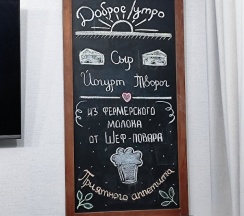 Доброе утро
Сыр
Йогурт Творог
ИЗ ФЕРМЕРСКОГО
МОЛОКА
ОТ ШЕФ-ПОВАРА
Приятного аппетита